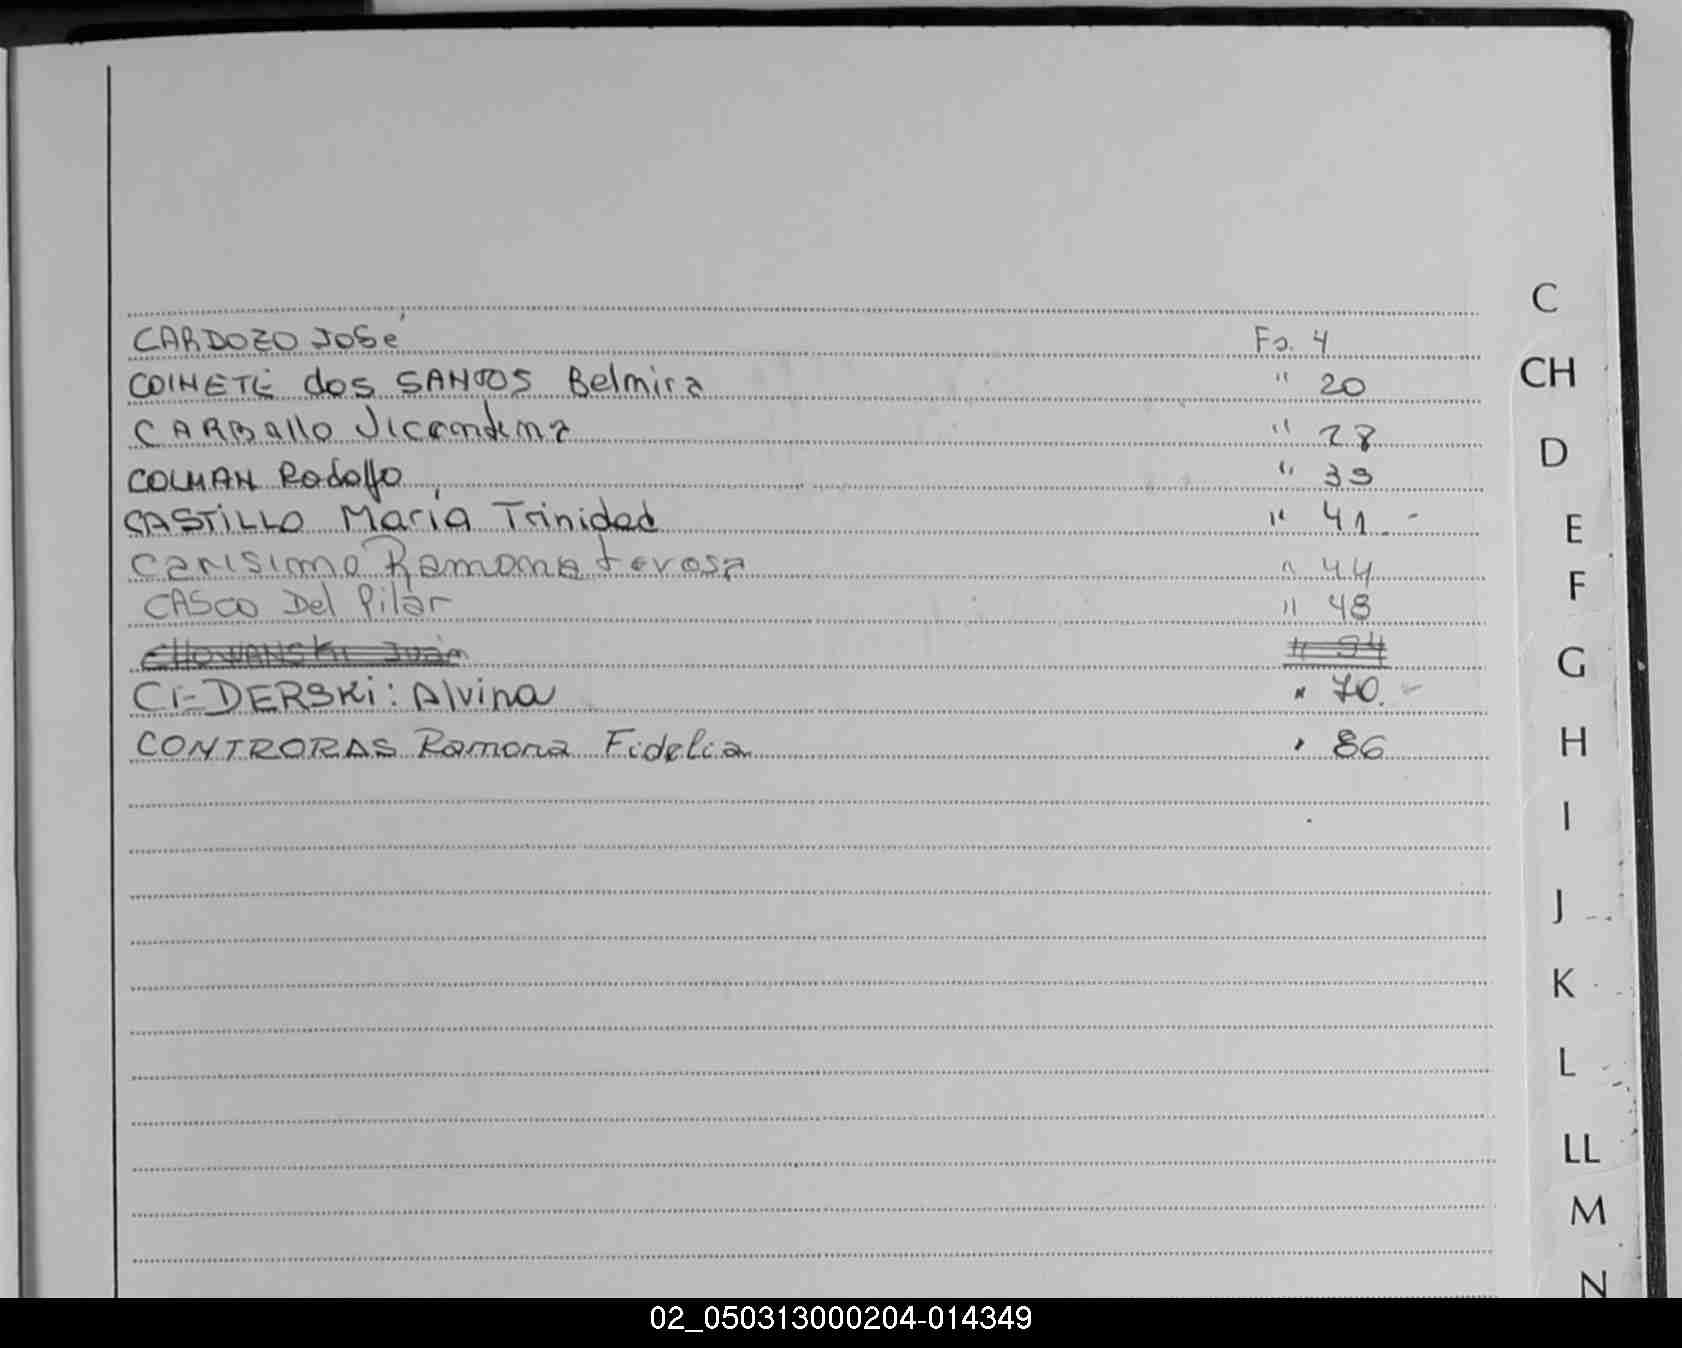 C
CARDOZO José Fo. 4
CH
COINETE dos SANTOS Belmira " 20
CARBallo Vicentina " 28
D
COLMAN Rodolfo " 39
CASTILLO María Trinidad " 41.-
E
Carisimo Ramona " 44
F
CASCO Del Pilar " 48
CHOWANSKi Juan " 94
G
Ci-DERSKi: Alvina " 70.-
H
CONTRORAS Ramona Fidelia " 86
I
J
K
L
LL
M
N
02_050313000204-014349